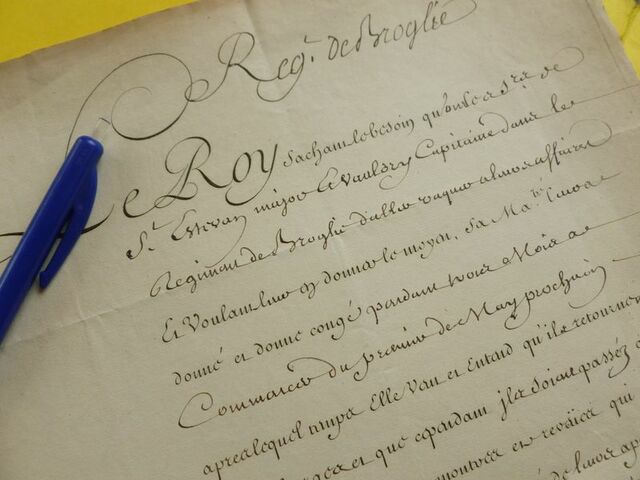 Reg.t de Broglie
Le Roy sachant le besoin qu'ont les S.rs de
S.t Estevan major Levauldry Capitaine dans le
Regiment de Broglie d'aller vaquer a leurs affaires
Et Voulant leur en donner le moyen, Sa Ma.té leur a
donné et donne congé pendant trois Mois a
Commancer du premier de May prochain
apres lequel temps Elle Veut et Entend qu'ils retournent
et que cependant ils soient passéz
montres et reveües qui
de leurs ap